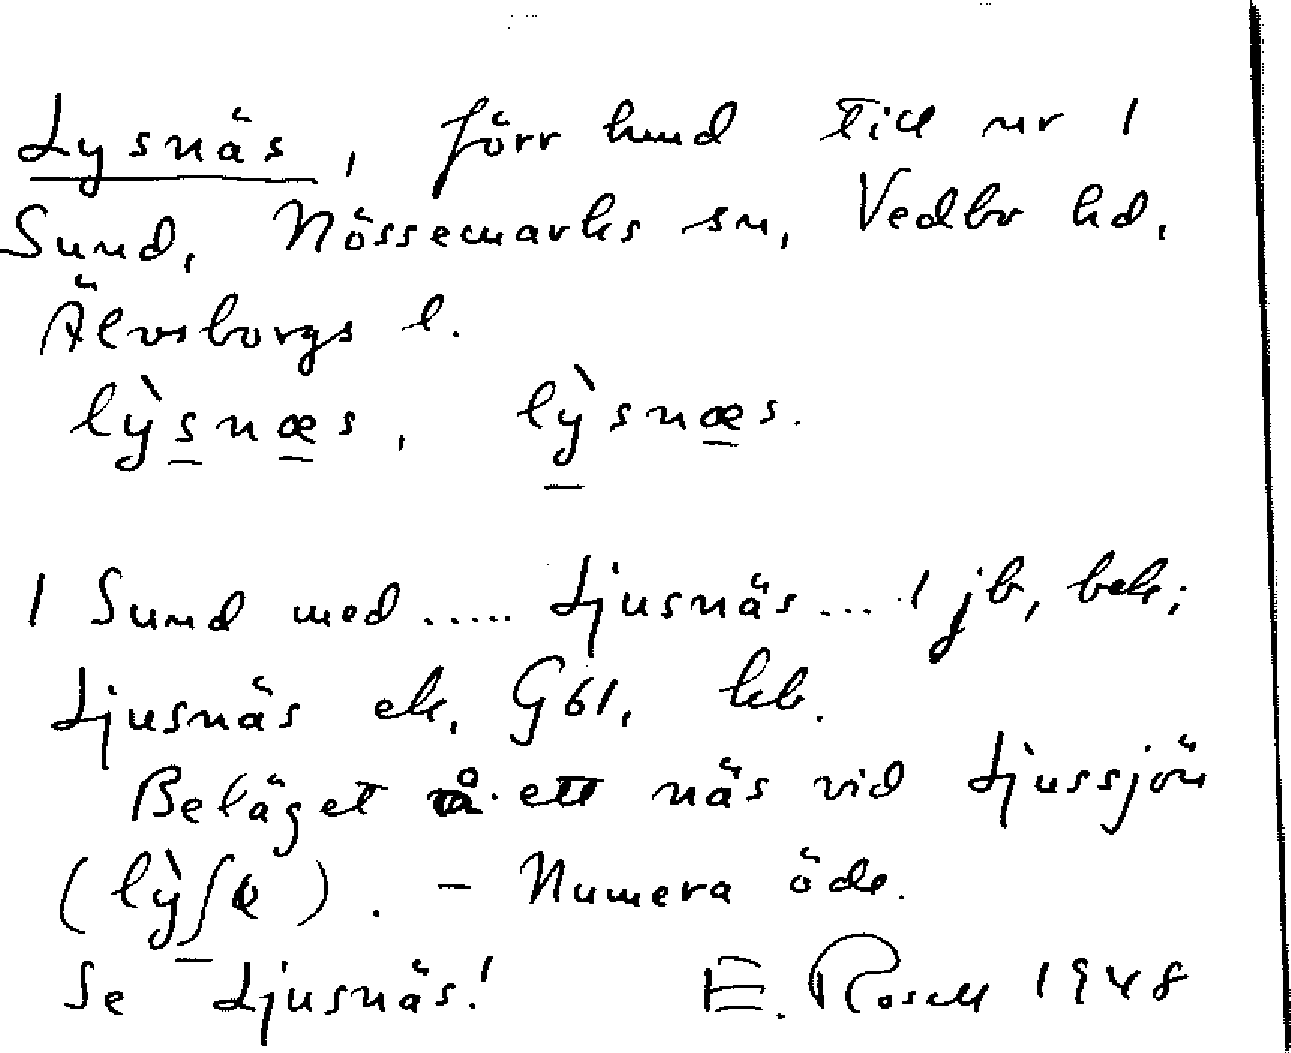 Lysnäs, förr hmd till nr 1
Sund, Nössemarks sn, Vedbo hd,
Älvsborgs l.
lỳsnæs, lỳsnæs.
1 Sund med ..... Ljusnäs ... 1 jb, bek;
Ljusnäs ek, G61, kb.
Beläget å ett näs vid Ljussjön
(lỳʃɵ). – Numera öde.
Se Ljusnäs! E. Rosell 1948